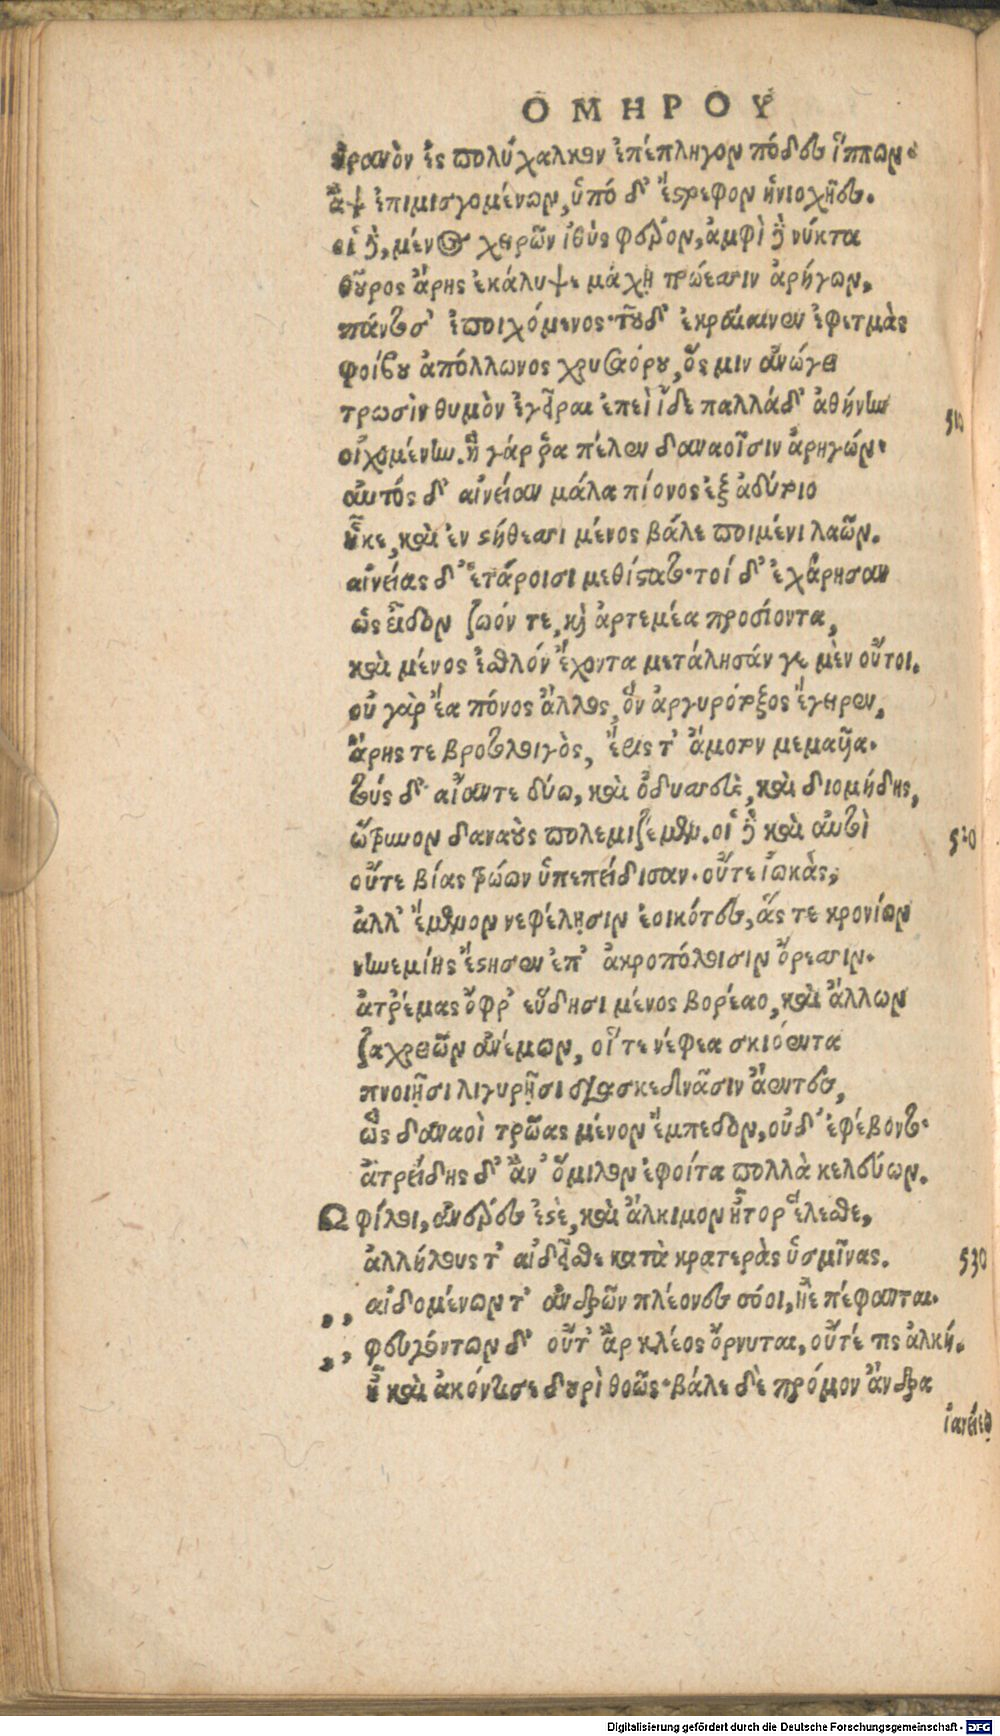 ΟΜΗΡΟΥ
οὐρανὸν ἐς πολύχαλκον ἐπέπληγον πόδες ἵππων·
ἂψ ἐπιμισγομένων, ὑπό δ' ἔστρεφον ἡνιοχῆες.
οἱ δὲ, μένος χειρῶν ἰθὺς φέρον, ἀμφὶ δὲ νύκτα
θοῦρος ἄρης ἐκάλυψε μάχῃ τρώεσσιν ἀρήγων,
πάντοσ' ἐποιχόμενος· τοῦ δ' ἐκραίαινεν ἐφετμὰς
φοίβου ἀπόλλωνος χρυσαόρου, ὅς μιν ἀνώγει
τρωσὶν θυμὸν ἐγεῖραι ἐπεὶ ἴδε παλλάδ' ἀθήνην
510
οἰχομένην. ἣ γάρ ῥα πέλεν δαναοῖσιν ἀρηγών·
αὐτός δ' αἰνείαν μάλα πίονος ἐξ ἀδύτοιο
ἧκε, καὶ ἐν στήθεσσι μένος βάλε ποιμένι λαῶν.
αἰνείας δ' ἑτάροισι μεθίστατο· τοί δ' ἐχάρησαν
ὡς εἶδον ζωόν τε, καὶ ἀρτεμέα προσίοντα,
καὶ μένος ἐσθλόν ἔχοντα μετάλησάν γε μὲν οὔτοι.
οὐ γὰρ ἔα πόνος ἄλλος, ὃν ἀργυρότοξος ἔγειρεν,
ἄρης τε βροτολοιγὸς, ἔρις τ' ἄμοτον μεμαυῖα.
τούς δ' αἴαντε δύω, καὶ ὀδυσσεὺς, καὶ διομήδης,
ὤτρυνον δαναοὺς πολεμιζέμεν. οἱ δὲ καὶ αὐτοὶ
520
οὔτε βίας τρώων ὑπεπείδισαν. οὔτε ἰωκὰς,
ἀλλ' ἔμενον νεφέλῃσιν ἐοικότες, ἅς τε κρονίων
νηνεμίης ἔστησεν ἐπ' ἀκροπόλοισιν ὄρεσσιν.
ἀτρέμας ὄφρ' εὕδησι μένος βορέαο, καὶ ἄλλων
ζαχρειῶν ἀνέμων, οἵ τε νέφεα σκιόεντα
πνοιῇσι λιγυρῇσι διασκεδνᾶσιν ἀέντες,
ὣς δαναοὶ τρῶας μένον ἔμπεδον, οὐδ' ἐφέβοντο·
ἀτρείδης δ' ἂν' ὅμιλον ἐφοίτα πολλὰ κελεύων.
Ω φίλοι, ἀνέρες ἐστὲ, καὶ ἄλκιμον ἦτορ ἕλεσθε,
ἀλλήλους τ' αἰδεῖσθε κατὰ κρατερὰς ὑσμῖνας.
530
,, αἰδομένων τ' ἀνδρῶν πλέονες σόοι, ἠὲ πέφανται.
,, φευγόντων δ' οὔτ' ἂρ κλέος ὄρνυται, οὔτέ τις ἀλκή.
ἦ καὶ ἀκόντισε δουρὶ θοῶς· βάλε δὲ πρόμον ἄνδρα
αἰνείεω
Digitalisierung gefördert durch die Deutsche Forschungsgemeinschaft - DFG